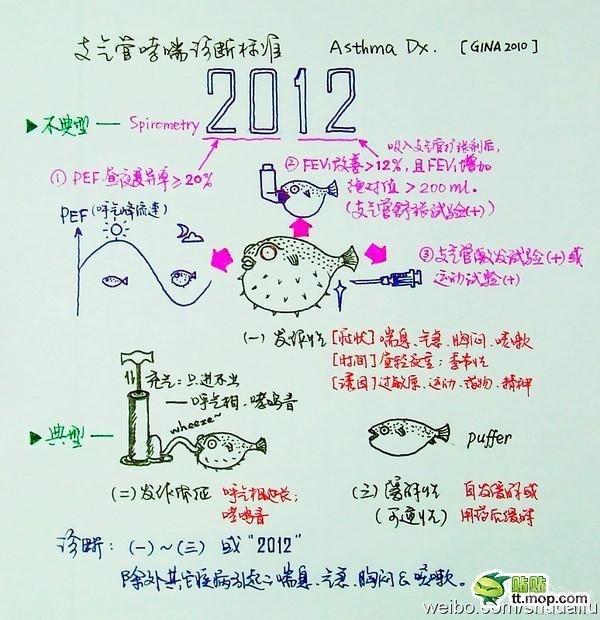 支气管哮喘诊断标准 Asthma Dx. [GINA 2010]
2012
▶不典型 — Spirometry
吸入支气管扩张剂后,
① PEF 昼夜变异率≥20%
② FEV₁改善>12%, 且FEV₁增加
绝对值>200ml.
(支气管舒张试验(+))
PEF (呼气峰流速)
③ 支气管激发试验(+)或
运动试验(+)
(一) 发作性 [症状] 喘息、气急、胸闷、咳嗽
[时间] 昼轻夜重; 季节性
[诱因] 过敏原、运动、药物、精神
充气: 只进不出
— 呼气相、哮鸣音
wheeze~
▶典型 —
puffer
(二) 发作体征 呼气相延长;
哮鸣音
(三) 缓解性 自发缓解或
(可逆性) 用药后缓解
诊断: (一)~(三) 或 "2012"
除外其它疾病引起之喘息、气急、胸闷&咳嗽。
贴贴
tt.mop.com
weibo.com/shudaifu